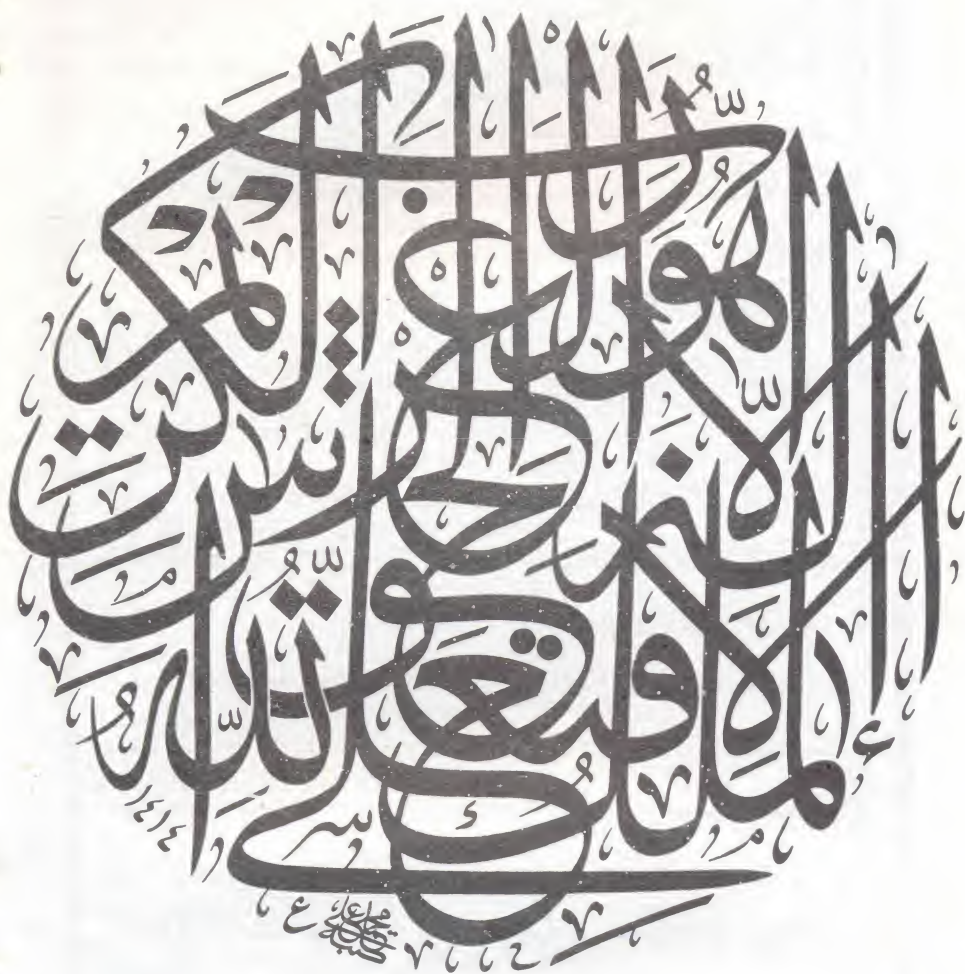 فَتَعَالَى اللَّهُ الْمَلِكُ الْحَقُّ لَا إِلَهَ إِلَّا هُوَ رَبُّ الْعَرْشِ الْكَرِيمِ
١٤١٤